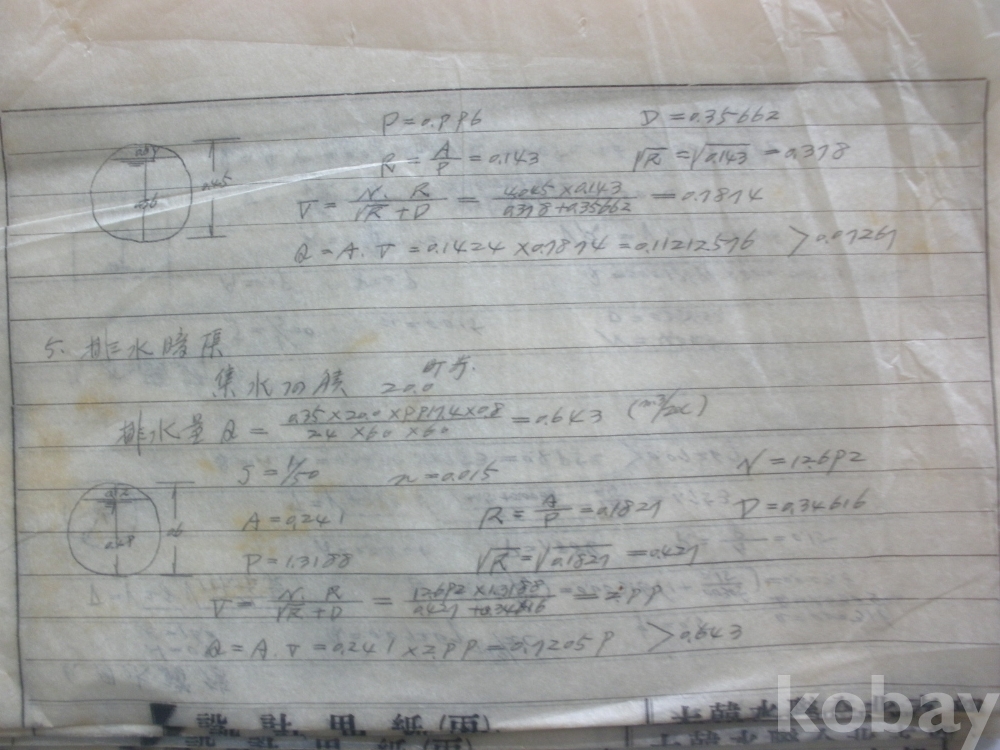 P = 0.996 D = 0.35662
R = A/P = 0.143 √R = √0.143 = 0.378
0.45
V = N R / √R + D = 4.045 × 0.143 / 0.378 + 0.35662 = 0.7874
Q = A. V = 0.1424 × 0.7874 = 0.11212576 > 0.07267
5. 排水暗渠
集水面積 20.0 町歩
排水量 Q = 0.35 × 20.0 × 9917.4 × 0.8 / 24 × 60 × 60 = 0.643 (m3/sec)
S = 1/50 n = 0.015 N = 12.692
A = 0.241 R = A/P = 0.1827 D = 0.34616
0.6
P = 1.3188 √R = √0.1827 = 0.427
V = N. R / √R + D = 12.692 × 1.3188 / 0.427 + 0.34616 = 2.99
Q = A. V = 0.241 × 2.99 = 0.72059 > 0.643
kobay